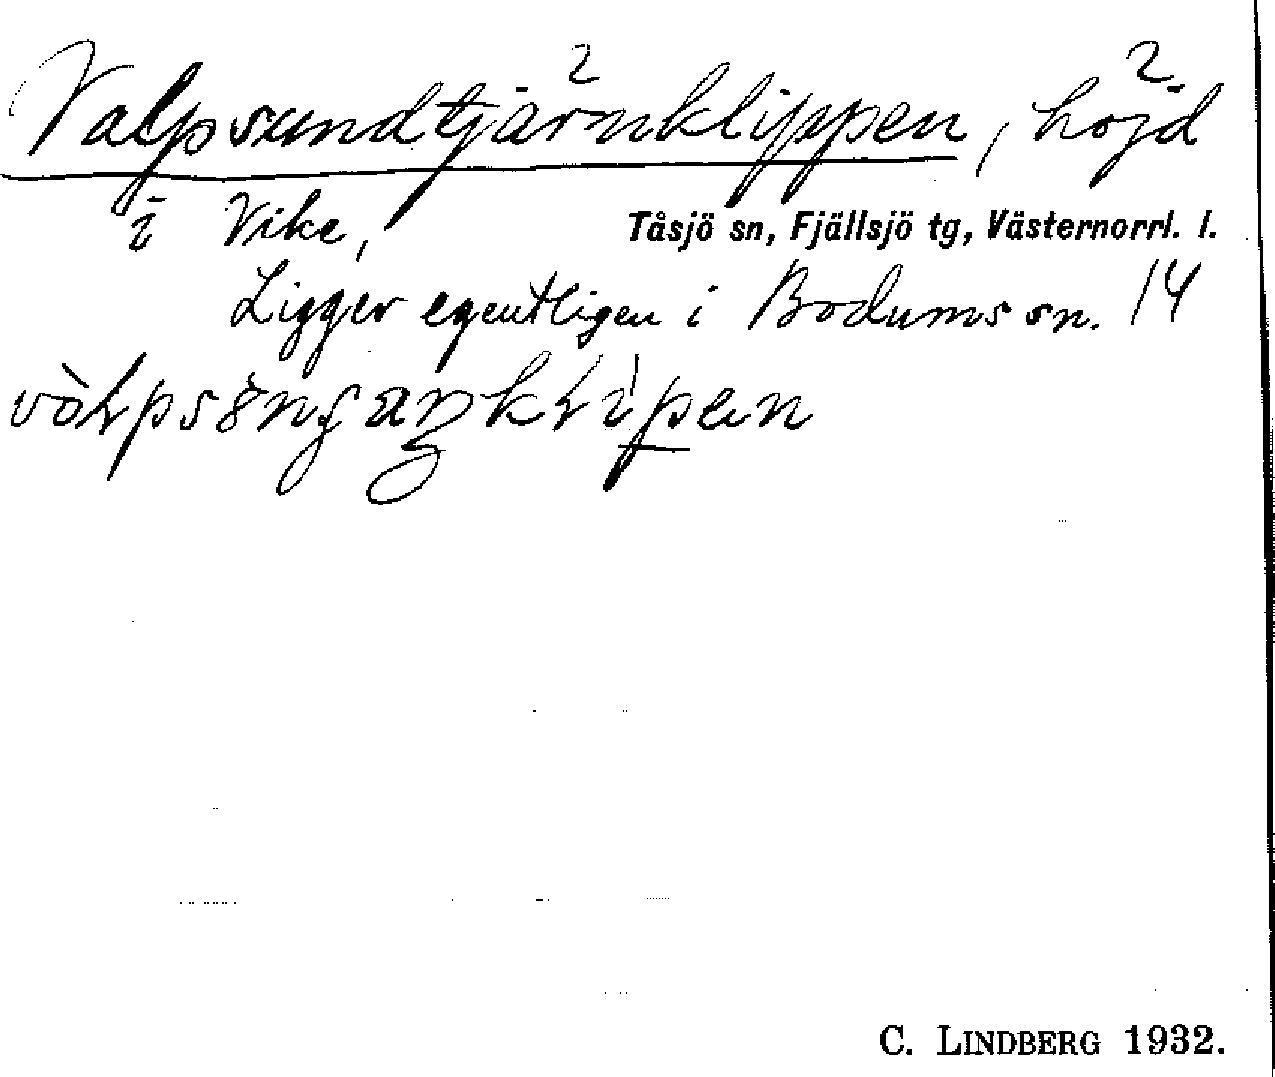 Valpsundtjärnklippen, höjd
i Vike,
Tåsjö sn, Fjällsjö tg, Västernorrl. l.
Ligger egentligen i Bodums sn. 14
C. LINDBERG 1932.